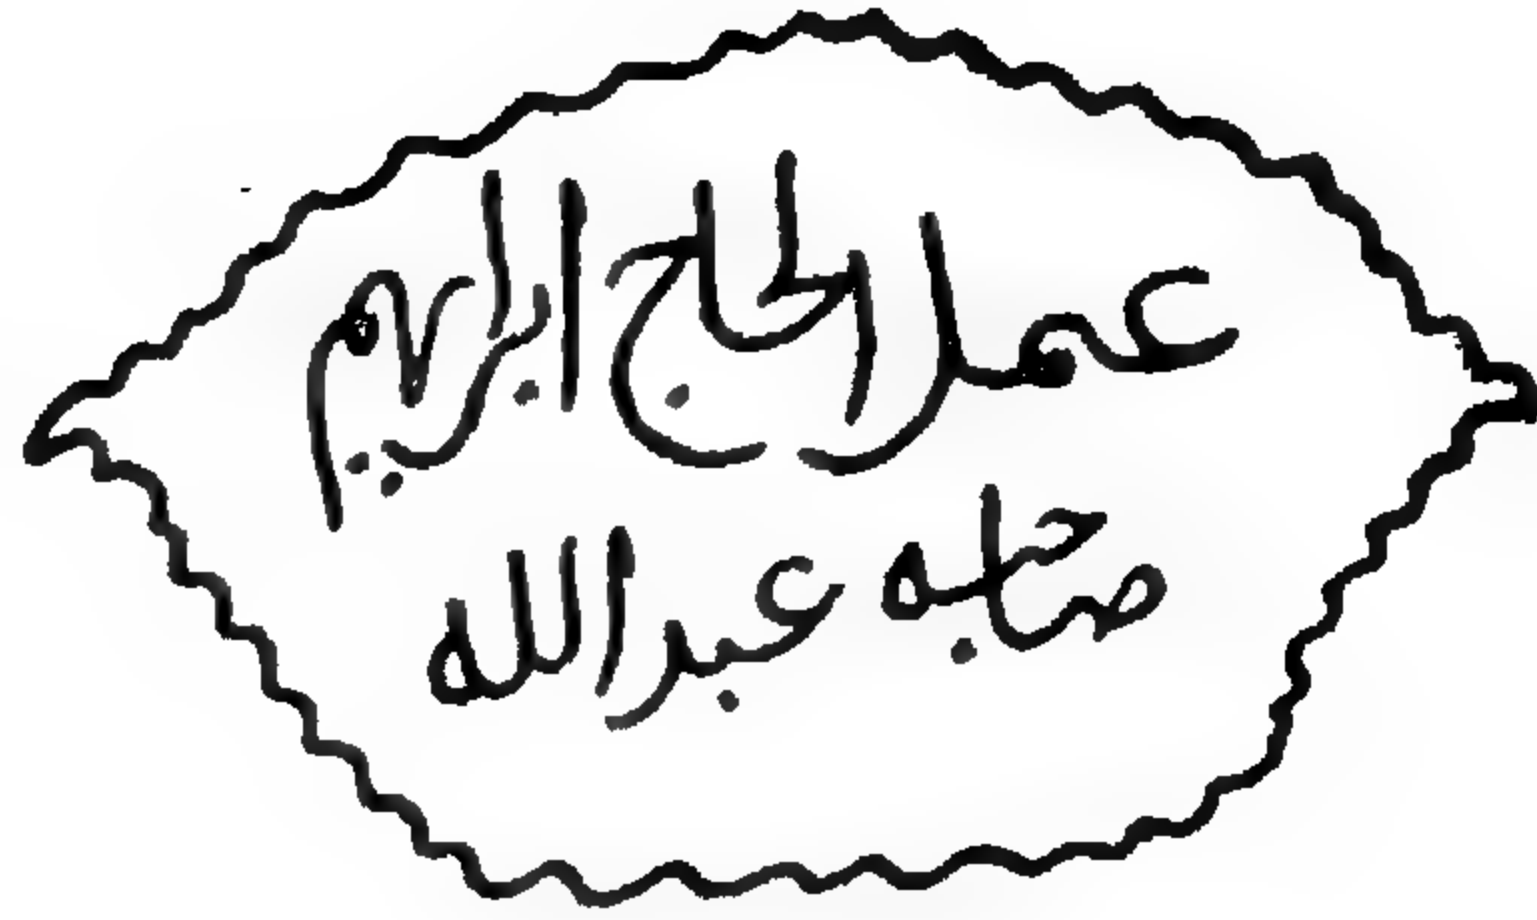 عمل الحاج ابراهيم
صاحبه عبدالله